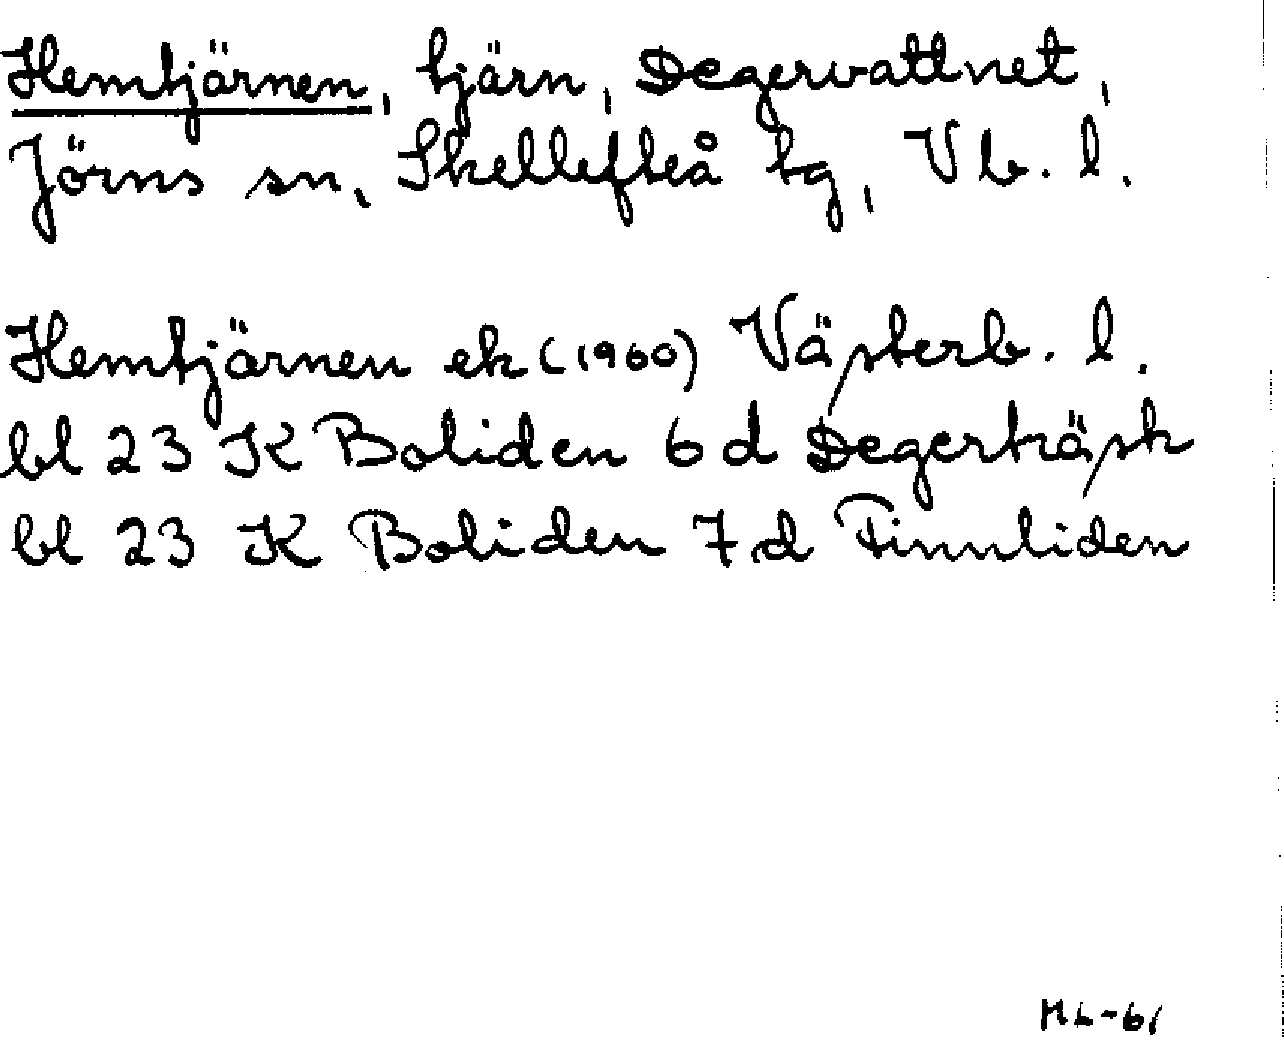 Hemtjärnen, tjärn, Degervattnet,
Jörns sn, Skellefteå tg, Vb. l.
Hemtjärnen ek (1960) Västerb. l.
bl 23 K Boliden 6 d Degerträsk
bl 23 K Boliden 7 d Finnliden
ML-61